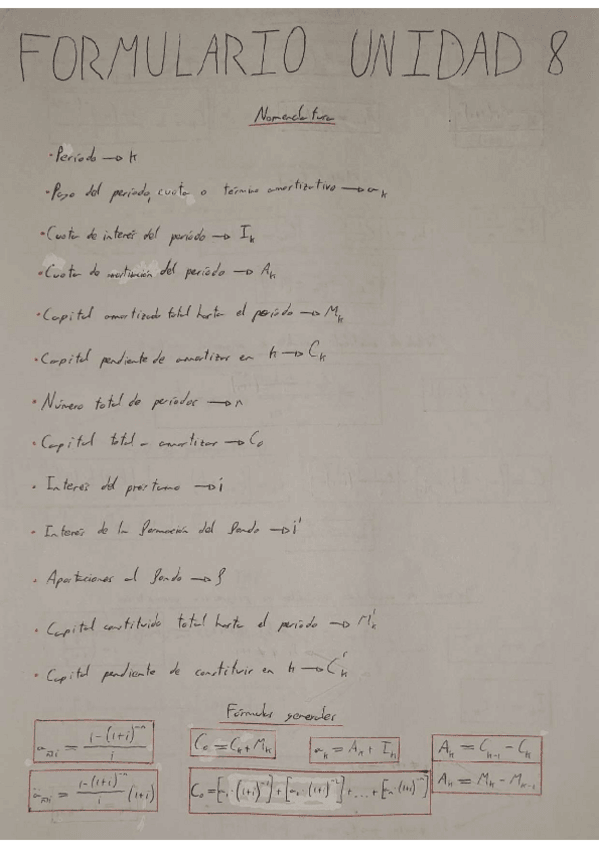 FORMULARIO UNIDAD 8
Nomenclatura
• Período → k
• Pago del período, cuota o término amortizativo → aₖ
• Cuota de interés del período → Iₖ
• Cuota de amortización del período → Aₖ
• Capital amortizado total hasta el período → Mₖ
• Capital pendiente de amortizar en k → Cₖ
• Número total de períodos → n
• Capital total a amortizar → C₀
• Interés del préstamo → i
• Interés de la formación del fondo → i'
• Aportaciones al fondo → f
• Capital constituido total hasta el período → M'ₖ
• Capital pendiente de constituir en k → C'ₖ
Fórmulas generales
a n̅|i = (1-(1+i)⁻ⁿ)/i
C₀ = Cₖ + Mₖ
aₖ = Aₖ + Iₖ
Aₖ = Cₖ₋₁ - Cₖ
ä n̅|i = (1-(1+i)⁻ⁿ)/i (1+i)
Aₖ = Mₖ - Mₖ₋₁